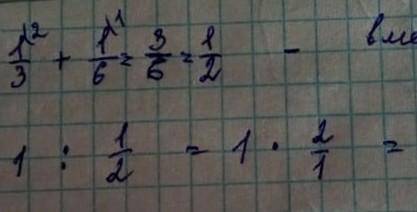 1/3² + 1/6¹ = 3/6 = 1/2 - вме
1 : 1/2 = 1 · 2/1 =